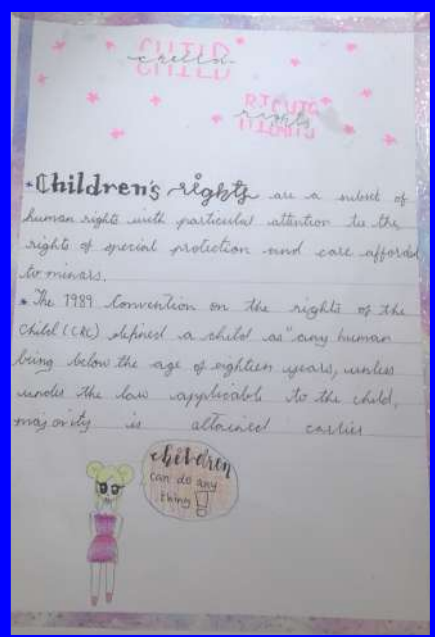 CHILD
child
RIGHTS
rights
* Children's rights are a subset of
human rights with particular attention to the
rights of special protection and care afforded
to minors.
* The 1989 Convention on the rights of the
Child (CRC) defined a child as "any human
being below the age of eighteen years, unless
under the law applicable to the child,
majority is attained earlier
children
can do any
thing!